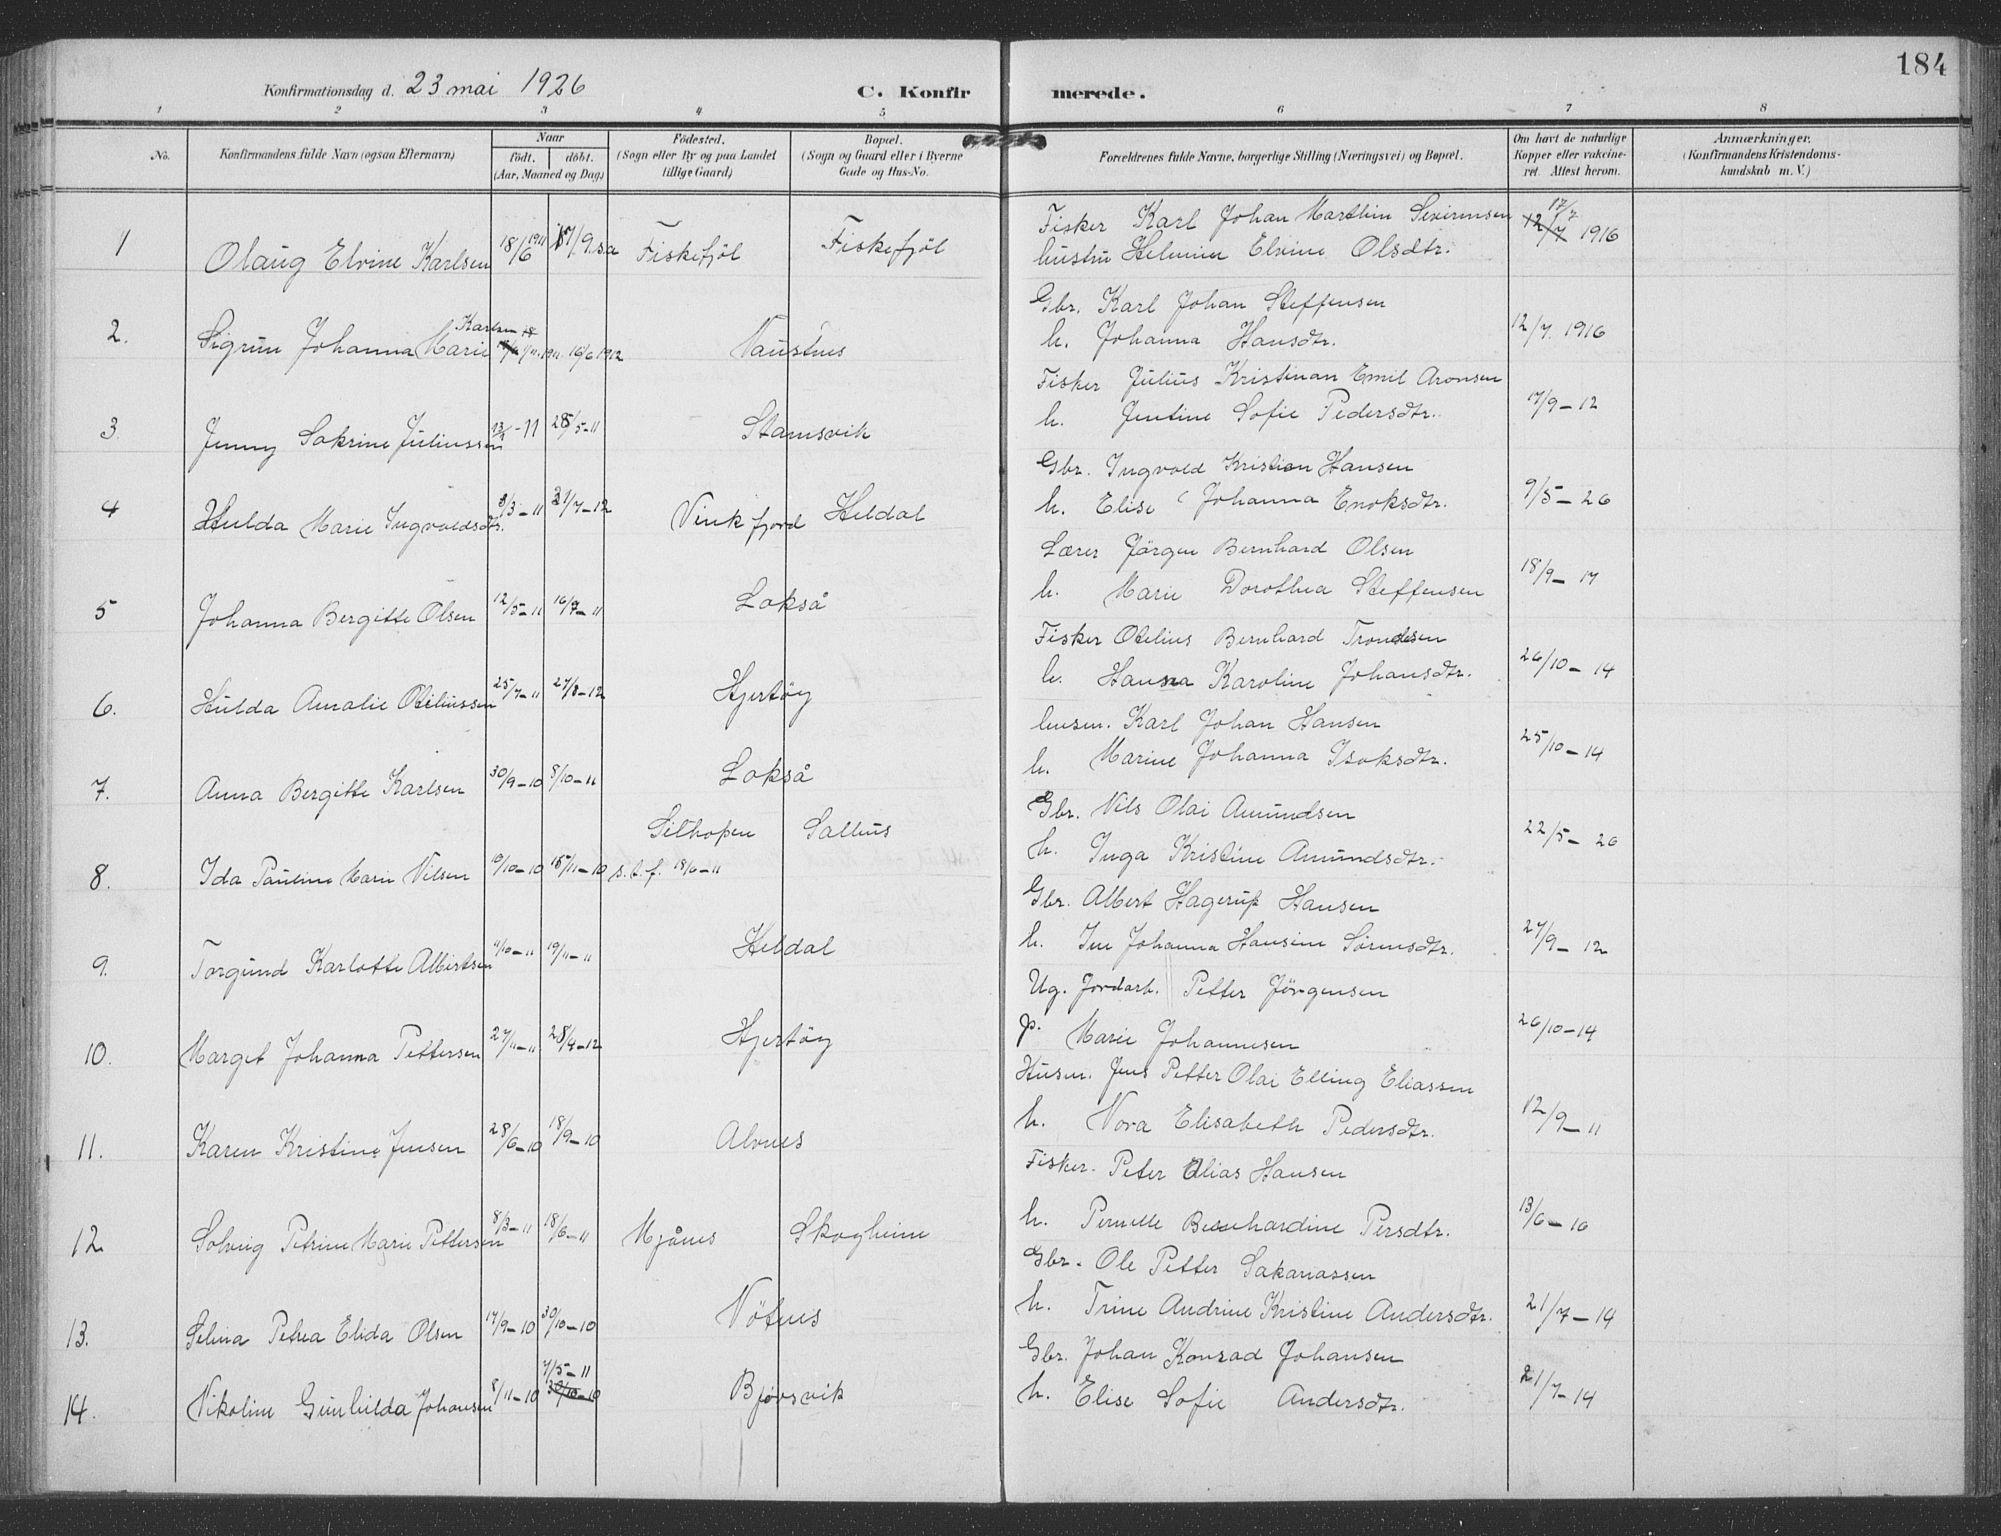 184
Konfirmationsdag d. 23 mai 1926
C. Konfirmerede.
1 2 3 4 5 6 7 8
No.
Konfirmandens fulde Navn (ogsaa Efternavn)
Naar
født. døbt.
(Aar, Maaned og Dag)
Fødested.
(Sogn eller By og paa Landet
tillige Gaard)
Bopæl.
(Sogn og Gaard eller i Byerne
Gade og Hus-No.
Forældrenes fulde Navne, borgerlige Stilling (Næringsvei) og Bopæl.
Om havt de naturlige
Kopper eller vakcine-
ret. Attest herom.
Anmærkninger.
(Konfirmandens Kristendoms-
kundskab m. V.)
1 Olaug Elvine Karlsen 18/6 1911 17/9 s.a Fiskefjöl Fiskefjöl
Fisker Karl Johan Marthin Severinsen 17/7
hustru Helmine Elvine Olsdtr. 12/7 1916
2. Sigrun Johanna Marie Karlsen 16/6 1912 Naustnes
Gbr. Karl Johan Steffensen
h. Johanna Hansdtr. 12/7. 1916
3. Jenny Sakrine Juliussen -11 28/5-11 Stamsvik
Fisker Julius Kristinan Emil Aronsen
h. Jentine Sofie Pedersdtr. 17/9-12
4 Hulda Marie Ingvaldsdtr. 9/3-11 21/7-12 Vinkfjord Heldal
Gbr. Ingvold Kristian Hansen
h. Elise Johanna Enoksdtr. 9/5-26
5 Johanna Bergitte Olsen 12/5-11 16/7-11 Lokså
Lærer Jörgen Bernhard Olsen
h. Marie Dorothea Steffensen 18/9-17
6. Hulda Amalie Otiliussen 25/7-11 27/8-12 Hjertöy
Fisker Otelius Bernhard Trondsen
h. Hanna Karoline Johansdtr. 26/10-14
7. Anna Bergitte Karlsen 30/9-10 8/10-11 Lokså
Karl Johan Hansen
h. Marine Johanna Isaksdtr. 25/10-14
8. Ida Pauline Marie Nilsen 10/10-10 15/11-10 s.t.f. 18/6-11 Silhopen Saltnes
Gbr. Nils Olai Amundsen
h. Inga Kristine Amundsdtr. 22/5-26
9. Torgund Karlotte Albertsen 4/10-11 19/11-11 Heldal
Gbr. Albert Hagerup Hansen
h. Ine Johanna Hansine Sörensdtr. 27/9-12
10. Marget Johanna Pettersen 27/11-11 28/4-12 Hjertöy
Ug. Jordarb. Petter Jörgensen
p. Marie Johannesen 26/10-14
11. Karen Kristine Jensen 28/6-10 18/9-10 Alvnes
Husm. Jens Petter Olai Elling Eliassen
h. Nora Elisabeth Pedersdtr. 12/9-11
12 Solveig Petrine Marie Pettersen 8/3-11 18/6-11 Mjånes Skogheim
Fisker. Peter Elias Hansen
h. Pernelle Bernhardine Persdtr. 13/6-16
13. Selina Petrea Elida Olsen 17/9-10 30/10-10 Nötnes
Gbr. Ole Petter Sakariassen
h. Trine Andrine Kristine Andersdtr. 21/7-14
14. Nikoline Gunhilda Johansen 8/11-10 7/5-11 30/10-10 Bjørsvik
Gbr. Johan Konrad Johansen
h. Elise Sofie Andersdtr. 21/7-14